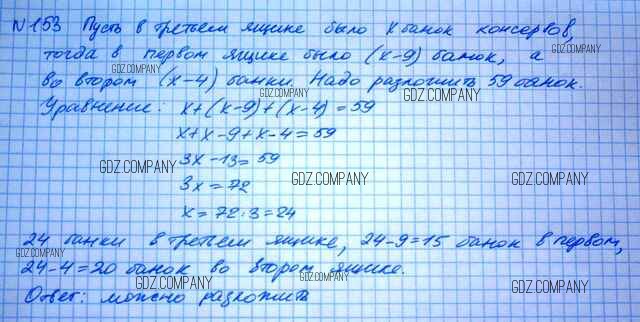 N 153 Пусть в третьем ящике было x банок консервов,
тогда в первом ящике было (x-9) банок, а
во втором (x-4) банки. Надо разложить 59 банок.
Уравнение: x+(x-9)+(x-4)=59
x+x-9+x-4=59
3x-13=59
3x=72
x=72:3=24
24 банки в третьем ящике, 24-9=15 банок в первом,
24-4=20 банок во втором ящике.
Ответ: можно разложить
GDZ.COMPANY
GDZ.COMPANY
GDZ.COMPANY
GDZ.COMPANY
GDZ.COMPANY
GDZ.COMPANY
GDZ.COMPANY
GDZ.COMPANY
GDZ.COMPANY
GDZ.COMPANY
GDZ.COMPANY
GDZ.COMPANY